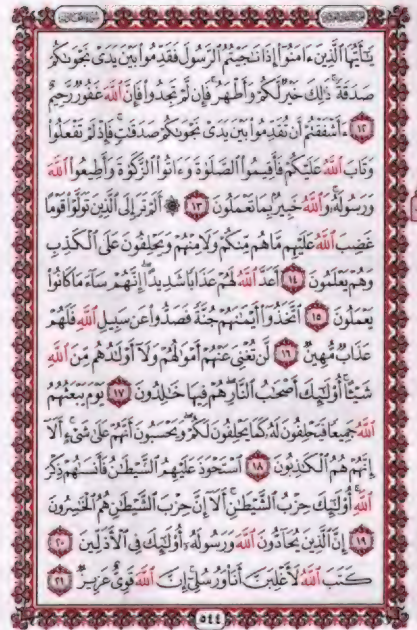 يَـٰٓأَيُّهَا ٱلَّذِينَ ءَامَنُوٓا۟ إِذَا نَـٰجَيْتُمُ ٱلرَّسُولَ فَقَدِّمُوا۟ بَيْنَ يَدَىْ نَجْوَىٰكُمْ
صَدَقَةً ۚ ذَٰلِكَ خَيْرٌ لَّكُمْ وَأَطْهَرُ ۚ فَإِن لَّمْ تَجِدُوا۟ فَإِنَّ ٱللَّهَ غَفُورٌ رَّحِيمٌ
١٢ ءَأَشْفَقْتُمْ أَن تُقَدِّمُوا۟ بَيْنَ يَدَىْ نَجْوَىٰكُمْ صَدَقَـٰتٍ ۚ فَإِذْ لَمْ تَفْعَلُوا۟
وَتَابَ ٱللَّهُ عَلَيْكُمْ فَأَقِيمُوا۟ ٱلصَّلَوٰةَ وَءَاتُوا۟ ٱلزَّكَوٰةَ وَأَطِيعُوا۟ ٱللَّهَ
وَرَسُولَهُۥ ۚ وَٱللَّهُ خَبِيرٌۢ بِمَا تَعْمَلُونَ ١٣ ۞ أَلَمْ تَرَ إِلَى ٱلَّذِينَ تَوَلَّوْا۟ قَوْمًا
غَضِبَ ٱللَّهُ عَلَيْهِم مَّا هُم مِّنكُمْ وَلَا مِنْهُمْ وَيَحْلِفُونَ عَلَى ٱلْكَذِبِ
وَهُمْ يَعْلَمُونَ ١٤ أَعَدَّ ٱللَّهُ لَهُمْ عَذَابًا شَدِيدًا ۖ إِنَّهُمْ سَآءَ مَا كَانُوا۟
يَعْمَلُونَ ١٥ ٱتَّخَذُوٓا۟ أَيْمَـٰنَهُمْ جُنَّةً فَصَدُّوا۟ عَن سَبِيلِ ٱللَّهِ فَلَهُمْ
عَذَابٌ مُّهِينٌ ١٦ لَّن تُغْنِىَ عَنْهُمْ أَمْوَٰلُهُمْ وَلَآ أَوْلَـٰدُهُم مِّنَ ٱللَّهِ
شَيْـًٔا ۚ أُو۟لَـٰٓئِكَ أَصْحَـٰبُ ٱلنَّارِ ۖ هُمْ فِيهَا خَـٰلِدُونَ ١٧ يَوْمَ يَبْعَثُهُمُ
ٱللَّهُ جَمِيعًا فَيَحْلِفُونَ لَهُۥ كَمَا يَحْلِفُونَ لَكُمْ ۖ وَيَحْسَبُونَ أَنَّهُمْ عَلَىٰ شَىْءٍ ۚ أَلَآ
إِنَّهُمْ هُمُ ٱلْكَـٰذِبُونَ ١٨ ٱسْتَحْوَذَ عَلَيْهِمُ ٱلشَّيْطَـٰنُ فَأَنسَىٰهُمْ ذِكْرَ
ٱللَّهِ ۚ أُو۟لَـٰٓئِكَ حِزْبُ ٱلشَّيْطَـٰنِ ۚ أَلَآ إِنَّ حِزْبَ ٱلشَّيْطَـٰنِ هُمُ ٱلْخَـٰسِرُونَ
١٩ إِنَّ ٱلَّذِينَ يُحَآدُّونَ ٱللَّهَ وَرَسُولَهُۥٓ أُو۟لَـٰٓئِكَ فِى ٱلْأَذَلِّينَ ٢٠
كَتَبَ ٱللَّهُ لَأَغْلِبَنَّ أَنَا۠ وَرُسُلِىٓ ۚ إِنَّ ٱللَّهَ قَوِىٌّ عَزِيزٌ ٢١
٥٤٤